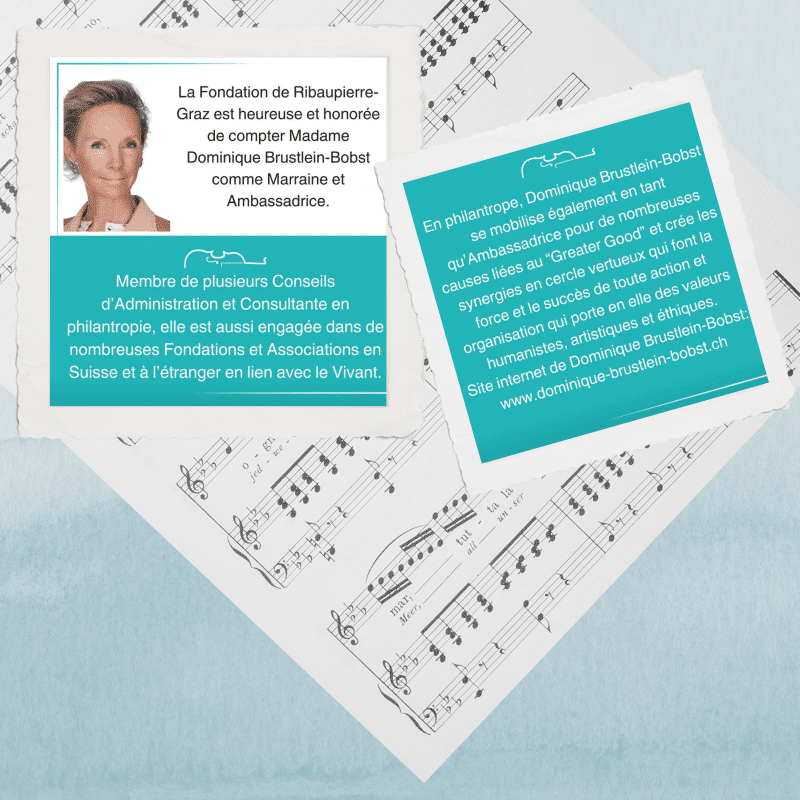 La Fondation de Ribaupierre-
Graz est heureuse et honorée
de compter Madame
Dominique Brustlein-Bobst
comme Marraine et
Ambassadrice.
Membre de plusieurs Conseils
d'Administration et Consultante en
philantropie, elle est aussi engagée dans de
nombreuses Fondations et Associations en
Suisse et à l'étranger en lien avec le Vivant.
En philantrope, Dominique Brustlein-Bobst
se mobilise également en tant
qu'Ambassadrice pour de nombreuses
causes liées au "Greater Good" et crée les
synergies en cercle vertueux qui font la
force et le succès de toute action et
organisation qui porte en elle des valeurs
humanistes, artistiques et éthiques.
Site internet de Dominique Brustlein-Bobst:
www.dominique-brustlein-bobst.ch
tut - ta la
all un-ser
mar,
Meer,